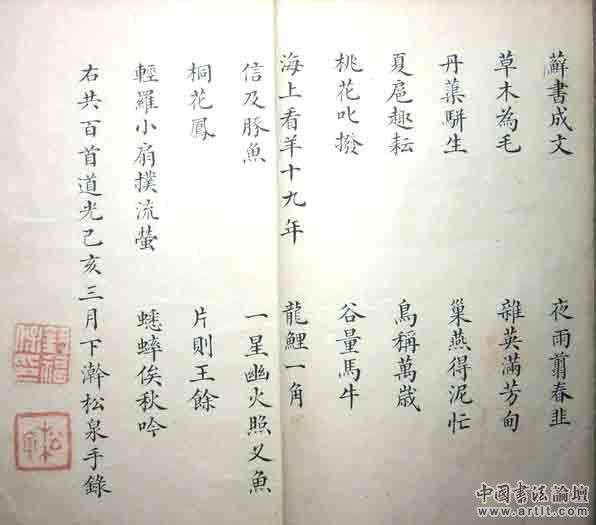 蘚書成文　夜雨翦春韭
草木為毛　雜英滿芳甸
丹蕖駢生　巢燕得泥忙
夏扈趣耘　鳥稱萬歲
桃花叱撥　谷量馬牛
海上看羊十九年　龍鯉一角
信及豚魚　一星幽火照叉魚
桐花鳳　片則王餘
輕羅小扇撲流螢　蟋蟀俟秋吟
右共百首道光己亥三月下澣松泉手錄
中國書法論壇
www.artlt.com